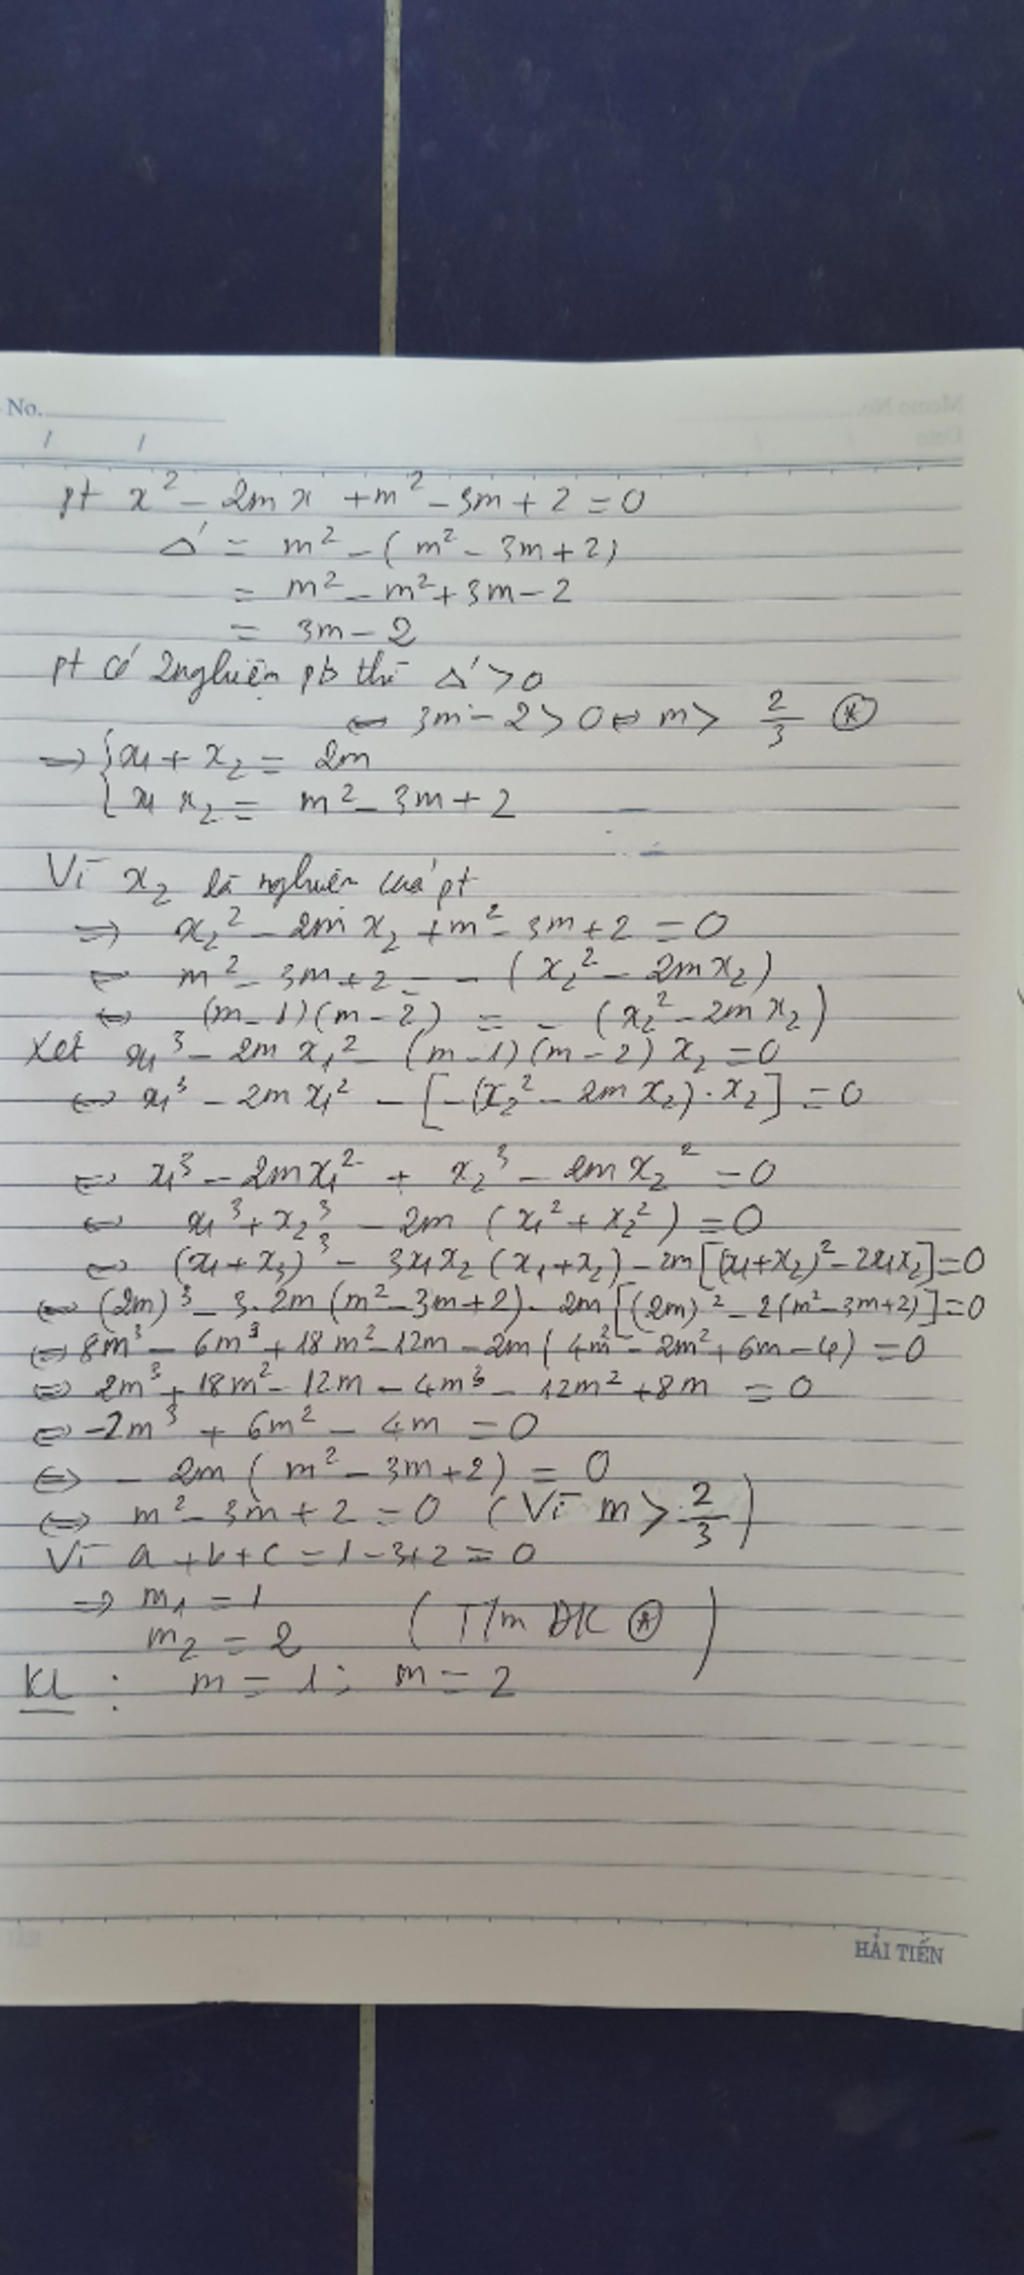 No.
Memo No.
Date
pt x² - 2mx + m² - 3m + 2 = 0
Δ' = m² - (m² - 3m + 2)
= m² - m² + 3m - 2
= 3m - 2
pt có 2 nghiệm pb thì Δ' > 0
⇔ 3m - 2 > 0 ⇔ m > 2/3 (*)
⇒ { x₁ + x₂ = 2m
{ x₁ x₂ = m² - 3m + 2
Vì x₂ là nghiệm của pt
⇒ x₂² - 2m x₂ + m² - 3m + 2 = 0
⇔ m² - 3m + 2 = - (x₂² - 2m x₂)
⇔ (m - 1)(m - 2) = - (x₂² - 2m x₂)
Xét x₁³ - 2m x₁² - (m - 1)(m - 2) x₂ = 0
⇔ x₁³ - 2m x₁² - [-(x₂² - 2m x₂) . x₂] = 0
⇔ x₁³ - 2m x₁² + x₂³ - 2m x₂² = 0
⇔ x₁³ + x₂³ - 2m (x₁² + x₂²) = 0
⇔ (x₁ + x₃)³ - 3x₁x₂ (x₁ + x₂) - 2m [(x₁ + x₂)² - 2x₁x₂] = 0
⇔ (2m)³ - 3. 2m (m² - 3m + 2) - 2m [(2m)² - 2(m² - 3m + 2)] = 0
⇔ 8m³ - 6m³ + 18m² - 12m - 2m (4m² - 2m² + 6m - 4) = 0
⇔ 2m³ + 18m² - 12m - 4m³ - 12m² + 8m = 0
⇔ -2m³ + 6m² - 4m = 0
⇔ - 2m (m² - 3m + 2) = 0
⇔ m² - 3m + 2 = 0 (Vì m > 2/3)
Vì a + b + c = 1 - 3 + 2 = 0
⇒ m₁ = 1
m₂ = 2 (T/m ĐK (*))
KL : m = 1 ; m = 2
HẢI TIẾN